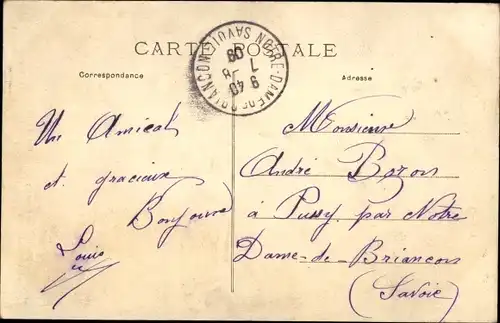 CARTE POSTALE
NOTRE-DAME DE BRIANCON SAVOIE
9 40
7 -8
09
Correspondance
Adresse
Un Amical
et gracieux
Bonjour
Louis
Monsieur
André Bozon
à Pussy par Notre
Dame-de-Briancon
(Savoie)